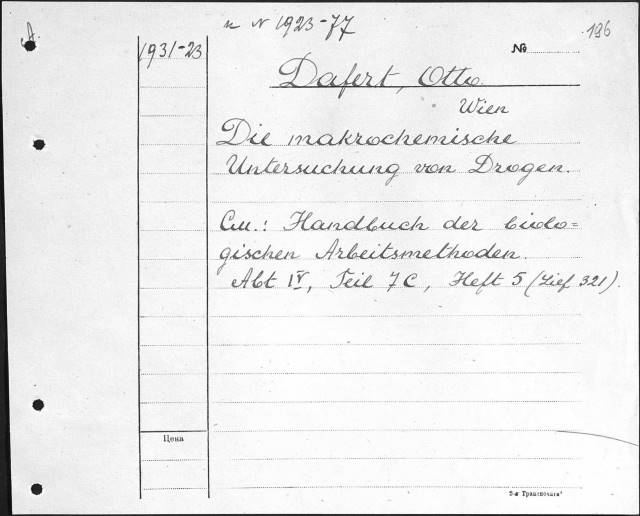 N 1923-77
196
1931-23
№
Dafert, Otto.
Wien
Die makrochemische
Untersuchung von Drogen.
См.: Handbuch der biolo=
gischen Arbeitsmethoden.
Abt IV, Teil 7C, Heft 5 (Lief 321).
Цена